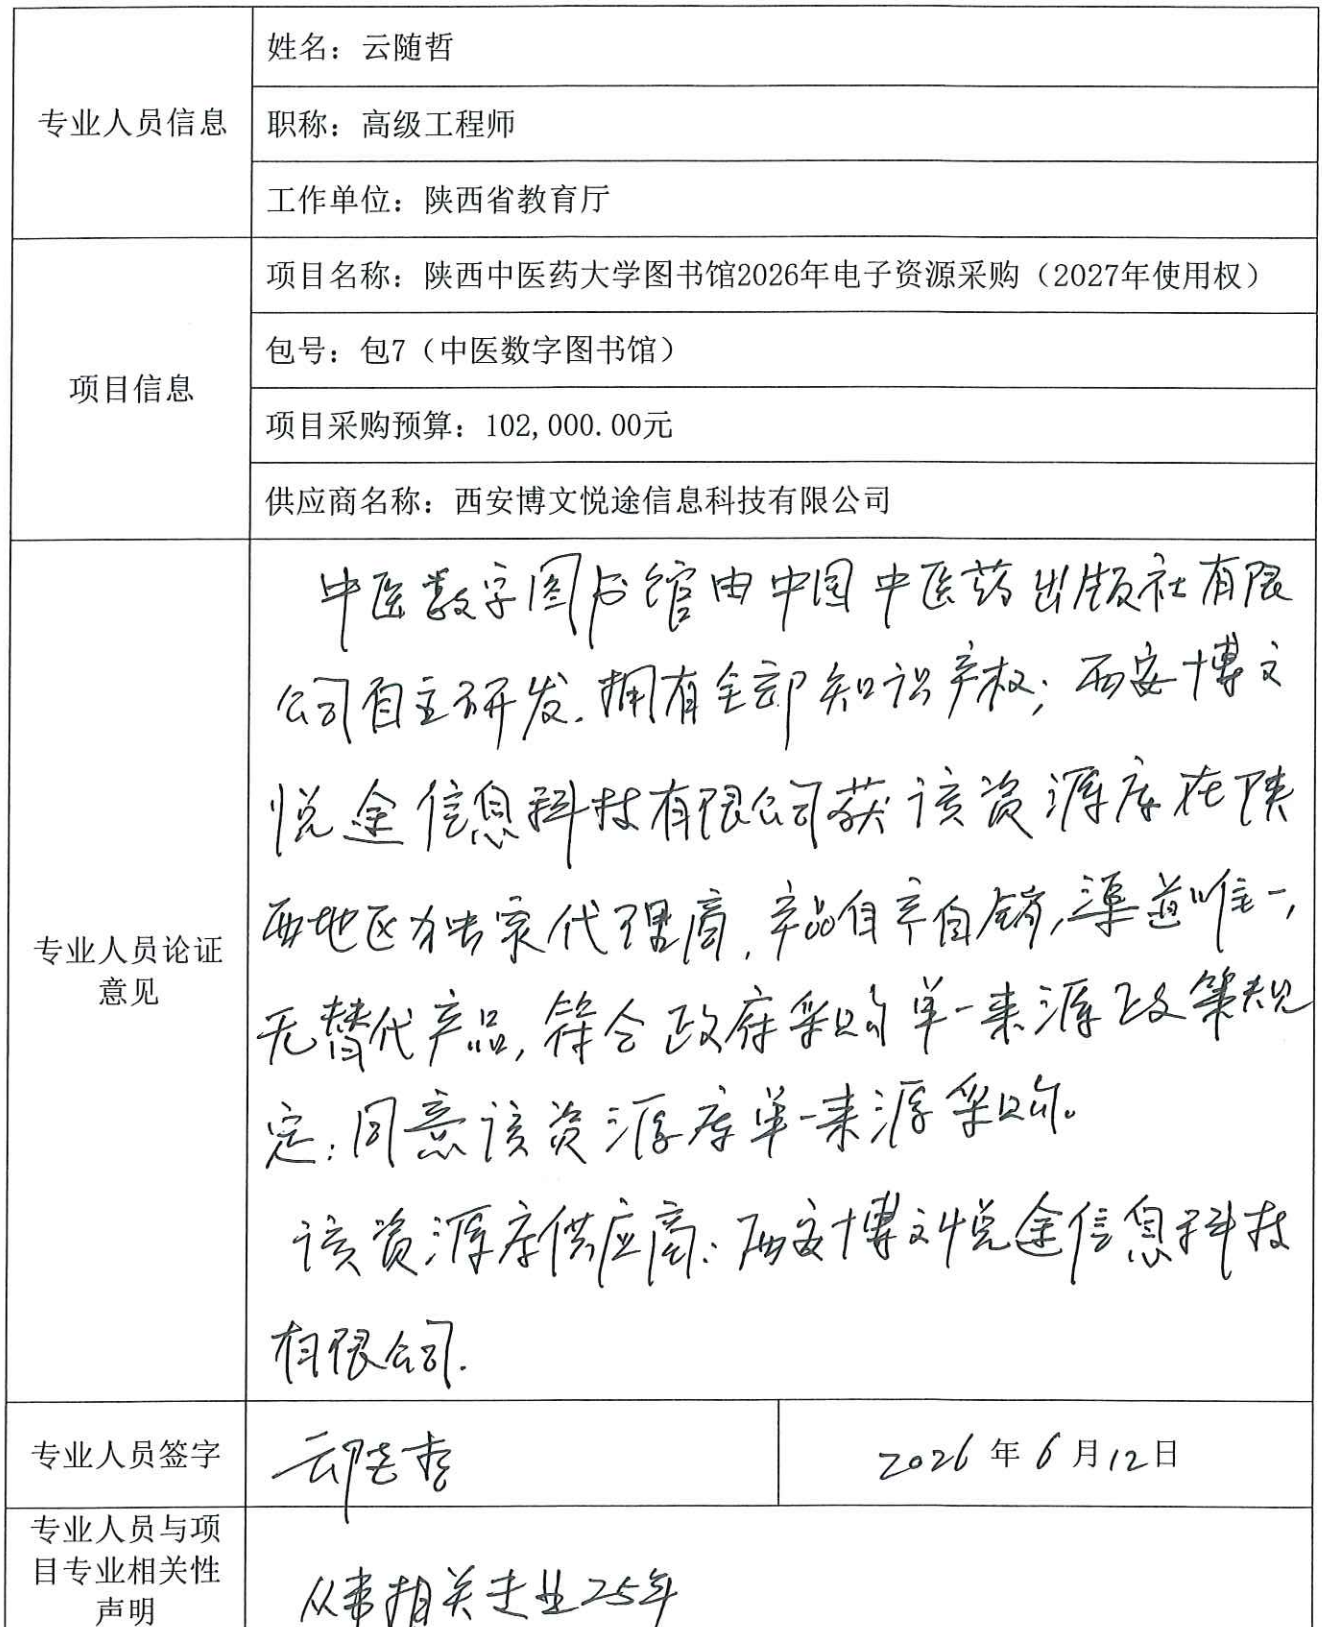 专业人员信息
姓名：云随哲
职称：高级工程师
工作单位：陕西省教育厅
项目信息
项目名称：陕西中医药大学图书馆2026年电子资源采购（2027年使用权）
包号：包7（中医数字图书馆）
项目采购预算：102,000.00元
供应商名称：西安博文悦途信息科技有限公司
专业人员论证
意见
中医数字图书馆由中国中医药出版社有限
公司自主研发.拥有全部知识产权；西安博文
悦途信息科技有限公司获该资源库在陕
西地区独家代理商,产品自产自销,渠道唯一,
无替代产品,符合政府采购单一来源政策规
定;同意该资源库单一来源采购。
该资源库供应商:西安博文悦途信息科技
有限公司.
专业人员签字
云随哲
2026年6月12日
专业人员与项
目专业相关性
声明
从事相关专业25年